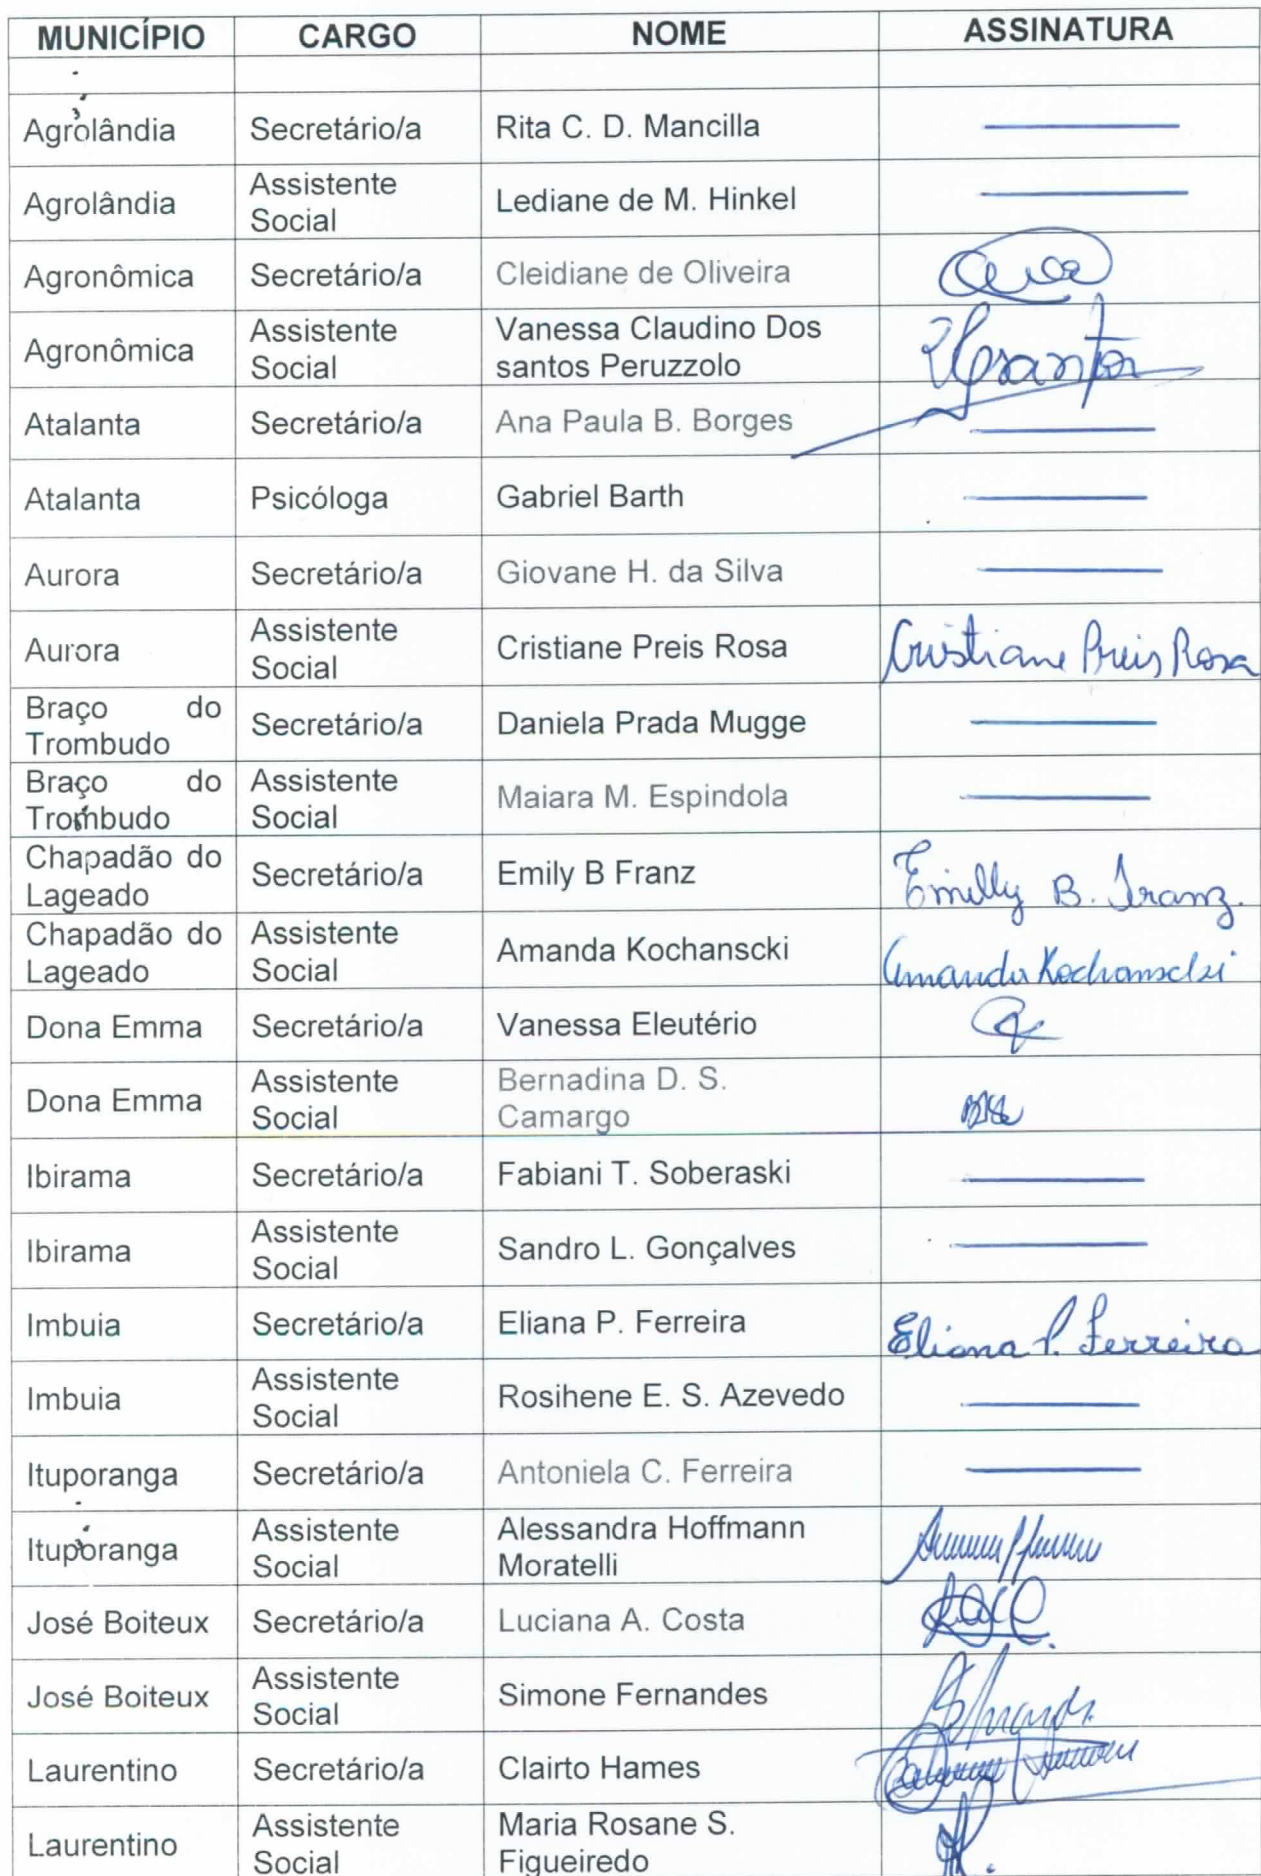 MUNICÍPIO CARGO NOME ASSINATURA
Agrolândia Secretário/a Rita C. D. Mancilla
Agrolândia Assistente Social Lediane de M. Hinkel
Agronômica Secretário/a Cleidiane de Oliveira
Agronômica Assistente Social Vanessa Claudino Dos santos Peruzzolo
Atalanta Secretário/a Ana Paula B. Borges
Atalanta Psicóloga Gabriel Barth
Aurora Secretário/a Giovane H. da Silva
Aurora Assistente Social Cristiane Preis Rosa Cristiane Preis Rosa
Braço do Trombudo Secretário/a Daniela Prada Mugge
Braço do Trombudo Assistente Social Maiara M. Espindola
Chapadão do Lageado Secretário/a Emily B Franz Emilly B. Franz.
Chapadão do Lageado Assistente Social Amanda Kochanscki Amanda Kochanscki
Dona Emma Secretário/a Vanessa Eleutério
Dona Emma Assistente Social Bernadina D. S. Camargo
Ibirama Secretário/a Fabiani T. Soberaski
Ibirama Assistente Social Sandro L. Gonçalves
Imbuia Secretário/a Eliana P. Ferreira Eliana P. Ferreira
Imbuia Assistente Social Rosihene E. S. Azevedo
Ituporanga Secretário/a Antoniela C. Ferreira
Ituporanga Assistente Social Alessandra Hoffmann Moratelli
José Boiteux Secretário/a Luciana A. Costa
José Boiteux Assistente Social Simone Fernandes
Laurentino Secretário/a Clairto Hames
Laurentino Assistente Social Maria Rosane S. Figueiredo